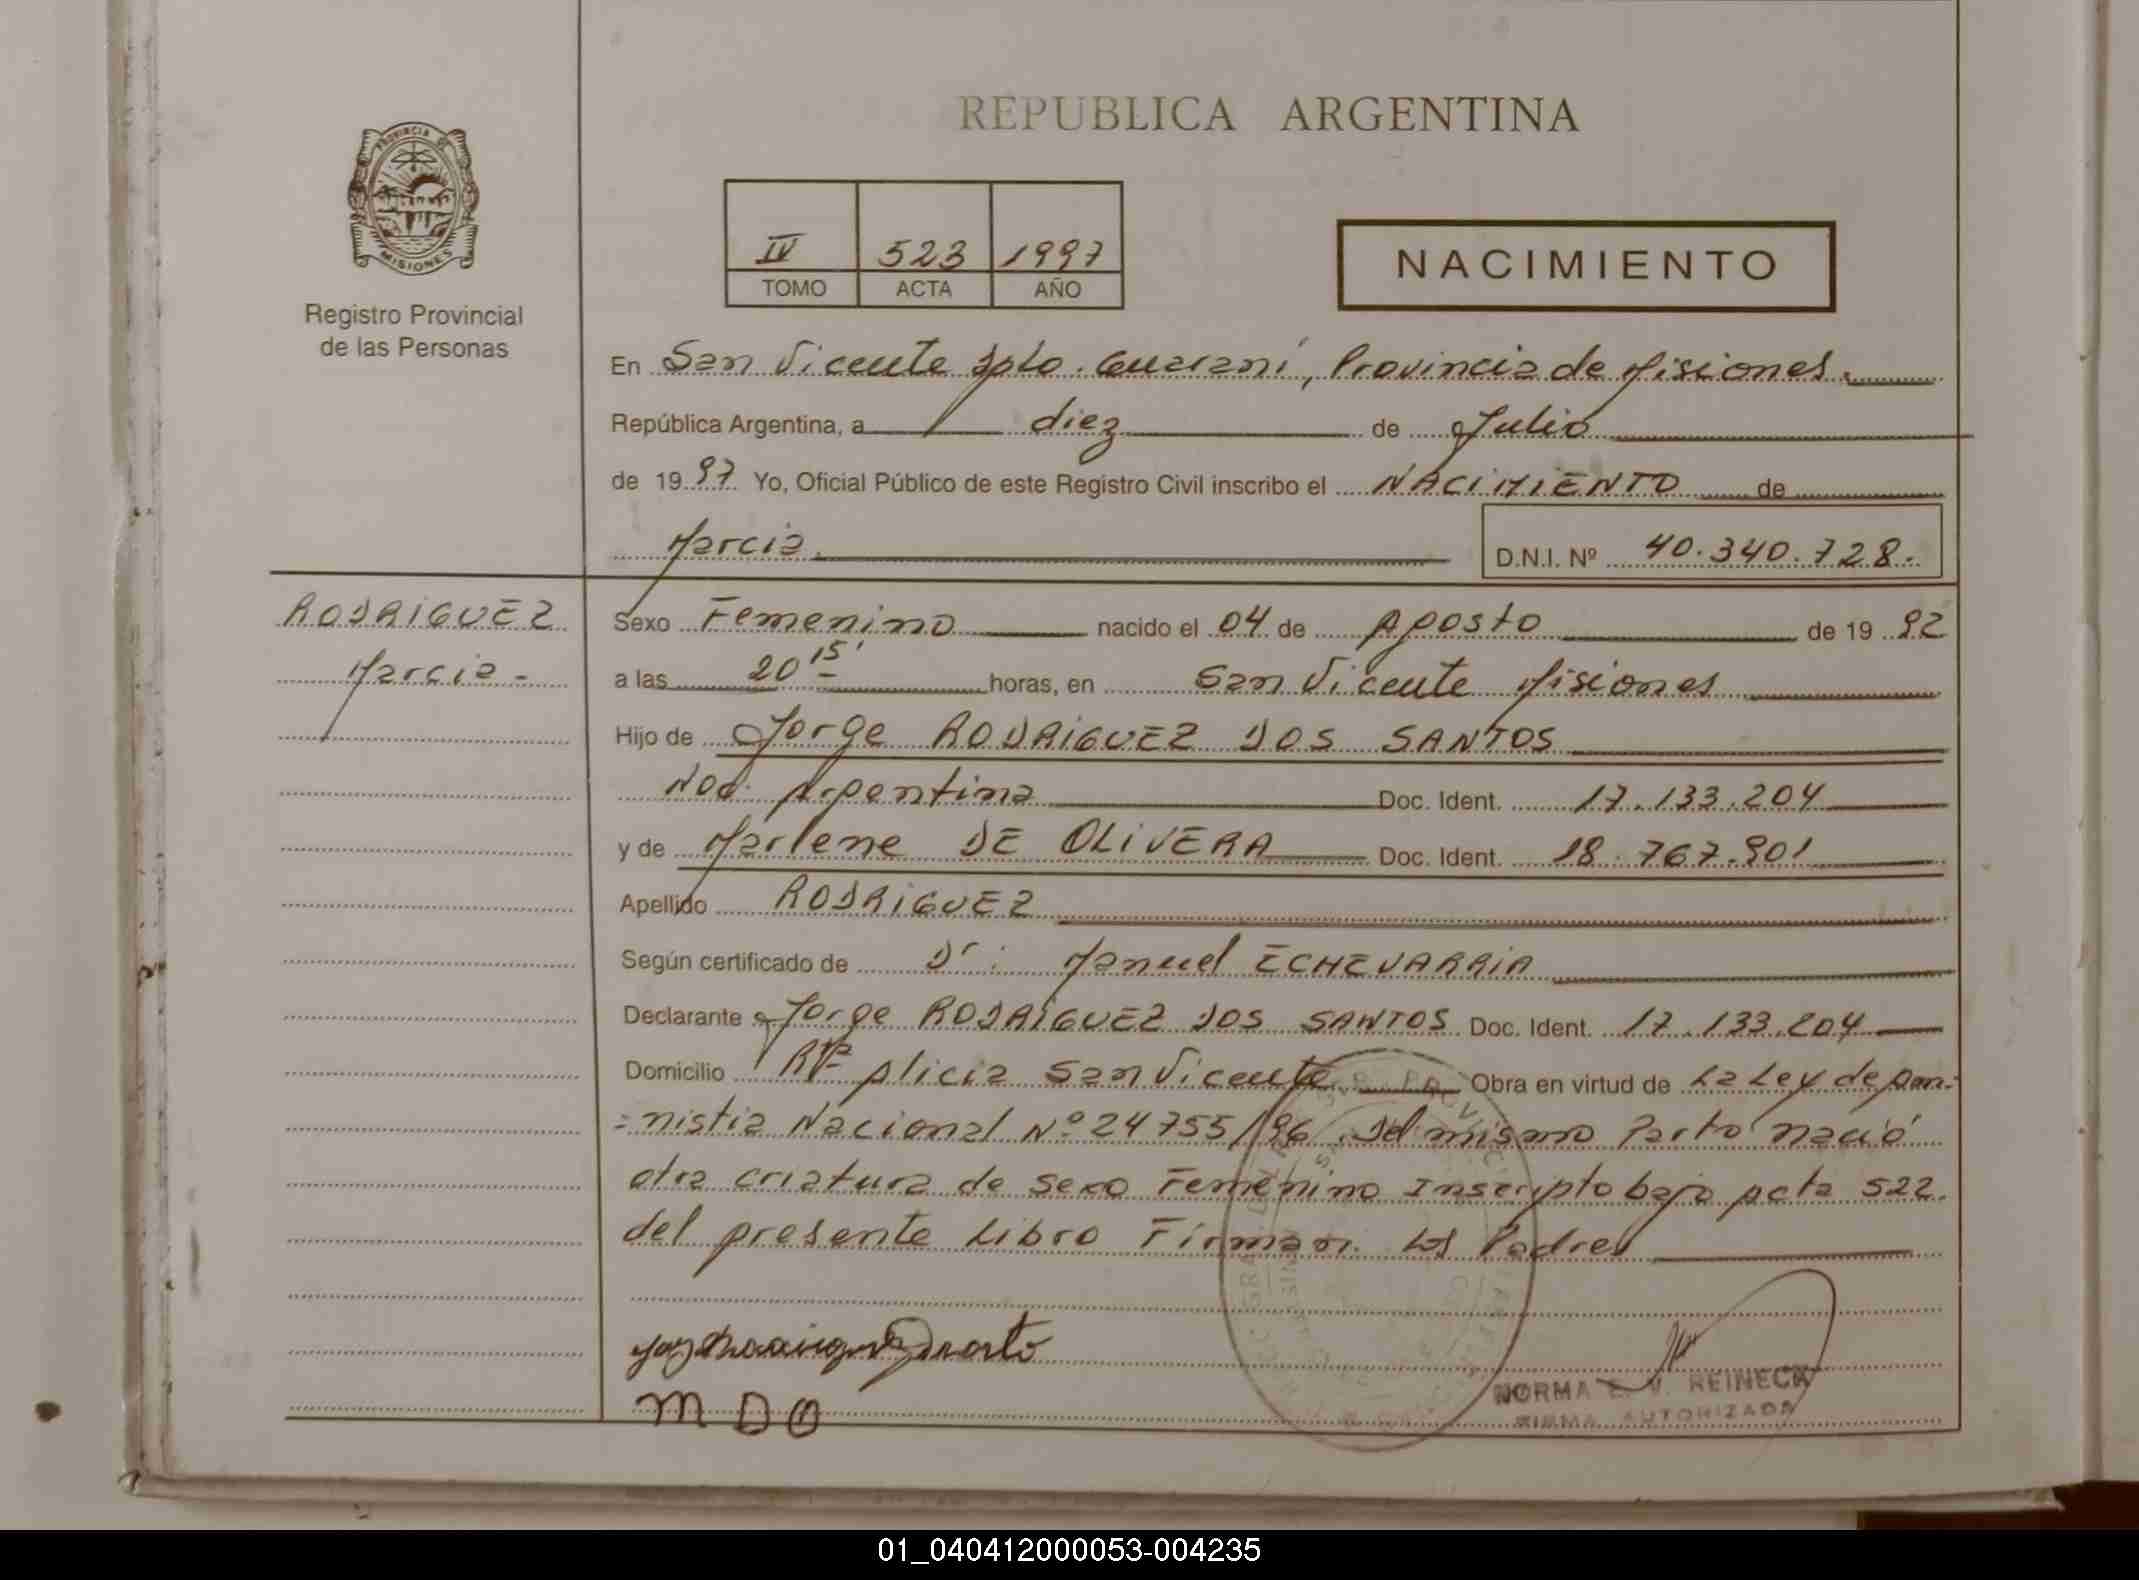 REPUBLICA ARGENTINA
PROVINCIA DE
MISIONES
Registro Provincial
de las Personas
IV 523 1997
TOMO ACTA AÑO
NACIMIENTO
En San Vicente Dpto. Guaraní, Provincia de Misiones.
República Argentina, a diez de Julio
de 1997 Yo, Oficial Público de este Registro Civil inscribo el NACIMIENTO de
Marcia.
D.N.I. Nº 40.340.728.
RODRIGUEZ
Marcia -
Sexo Femenino nacido el 04 de Agosto de 1992
a las 20 15' horas, en San Vicente Misiones
Hijo de Jorge RODRIGUEZ DOS SANTOS
Nac. Argentina Doc. Ident. 17.133.204
y de Marlene DE OLIVERA Doc. Ident. 18.767.901
Apellido RODRIGUEZ
Según certificado de Dr. Manuel ECHEVARRIA
Declarante Jorge RODRIGUEZ DOS SANTOS Doc. Ident. 17.133.204
Domicilio Alicia San Vicente Obra en virtud de La Ley de Am-
-nistia Nacional Nº 24755/96. Del mismo Parto nació
otra criatura de sexo Femenino Inscripto bajo acta 522.
del presente Libro Firman Los Padres
M D O
NORMA E. V. REINECK
FIRMA AUTORIZADA
01_040412000053-004235